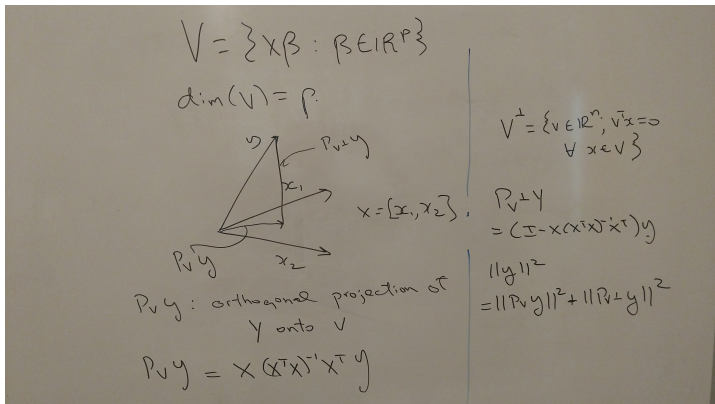 V = {Xβ : β ∈ ℝᵖ}
dim(V) = p.
y
P_{V⊥} y
x₁
x = [x₁, x₂].
P_V y
x₂
P_V y : orthogonal projection of
y onto V
P_V y = X (XᵀX)⁻¹ Xᵀ y
V^⊥ = {v ∈ ℝⁿ; vᵀx = 0
∀ x ∈ V}
P_{V⊥} y
= (I - X(XᵀX)⁻¹Xᵀ) y
||y||²
= ||P_V y||² + ||P_{V⊥} y||²